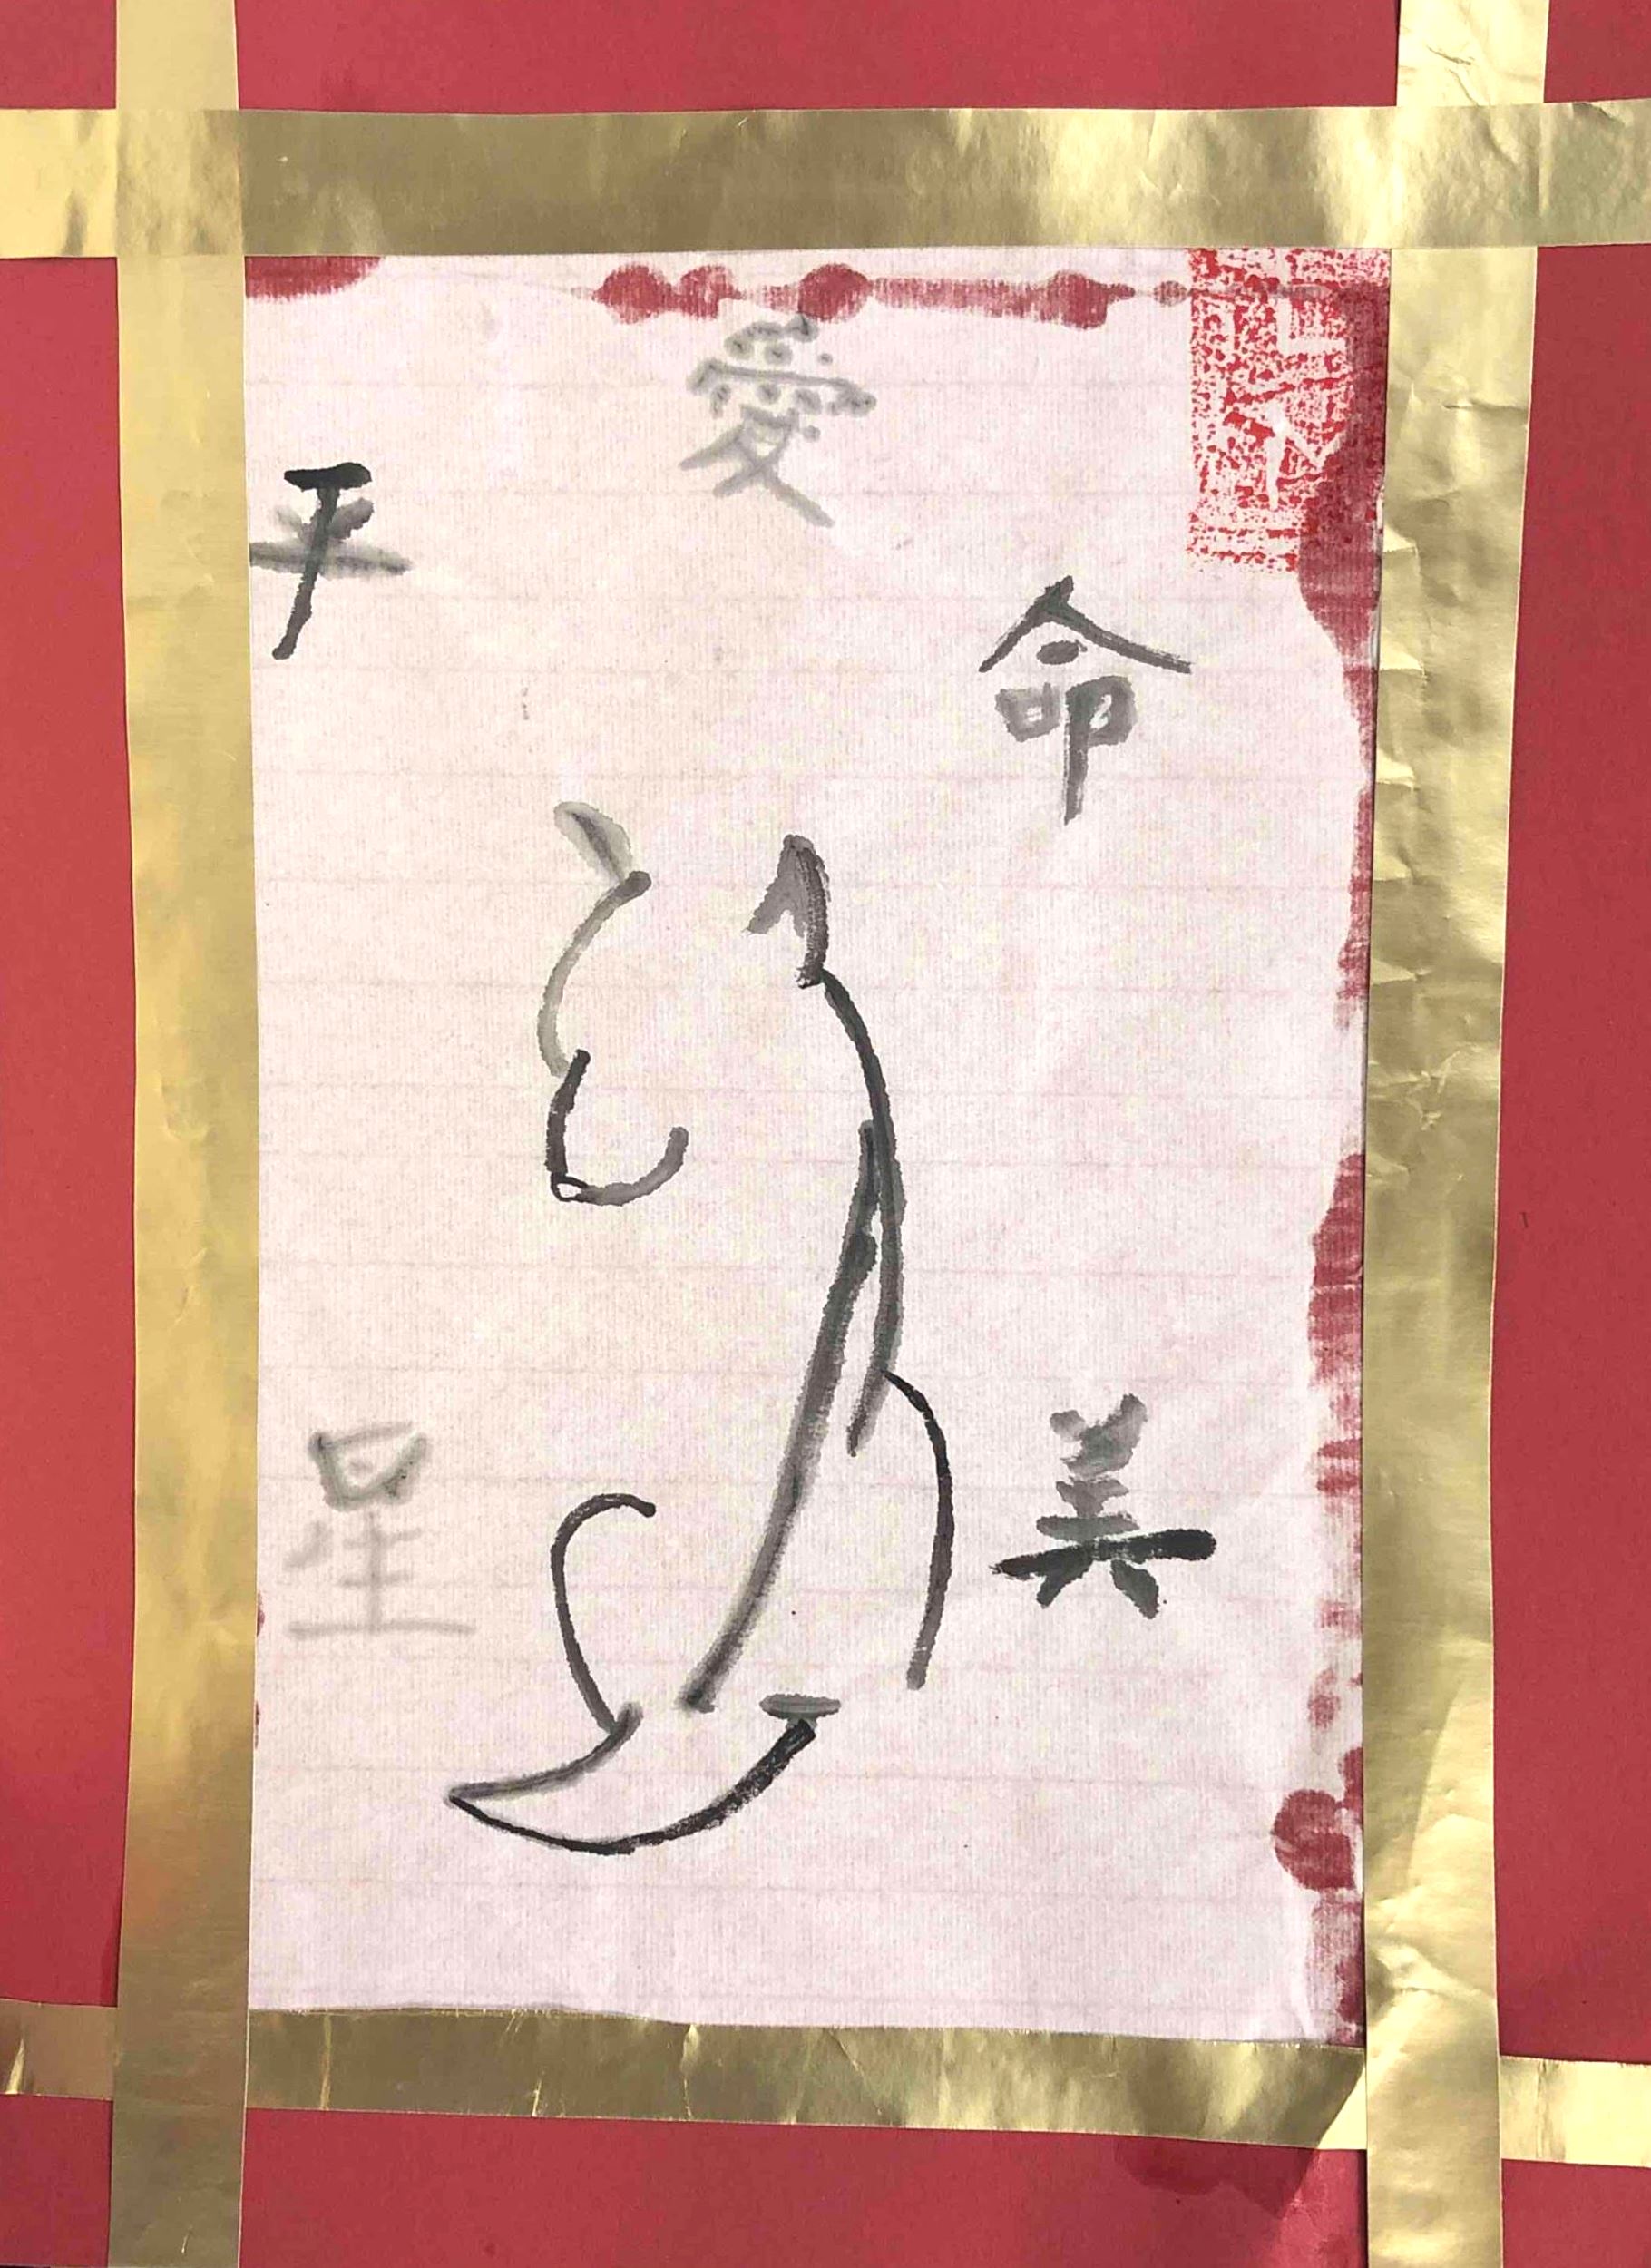 愛
平
命
星
美